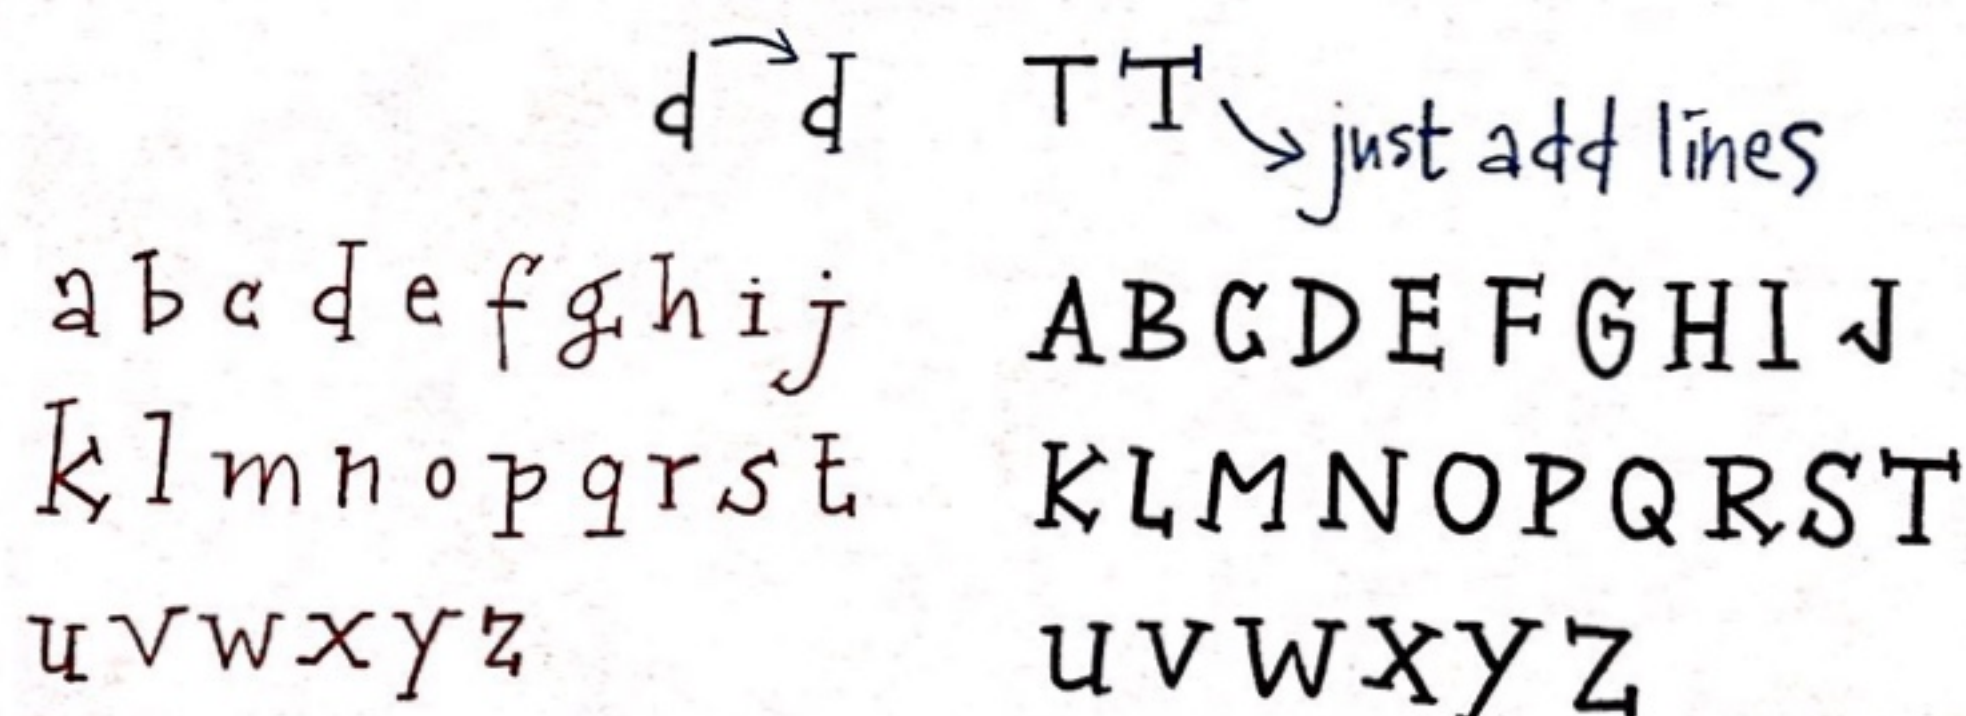 d → d
T T → just add lines
a b c d e f g h i j
k l m n o p q r s t
u v w x y z
A B C D E F G H I J
K L M N O P Q R S T
U V W X Y Z